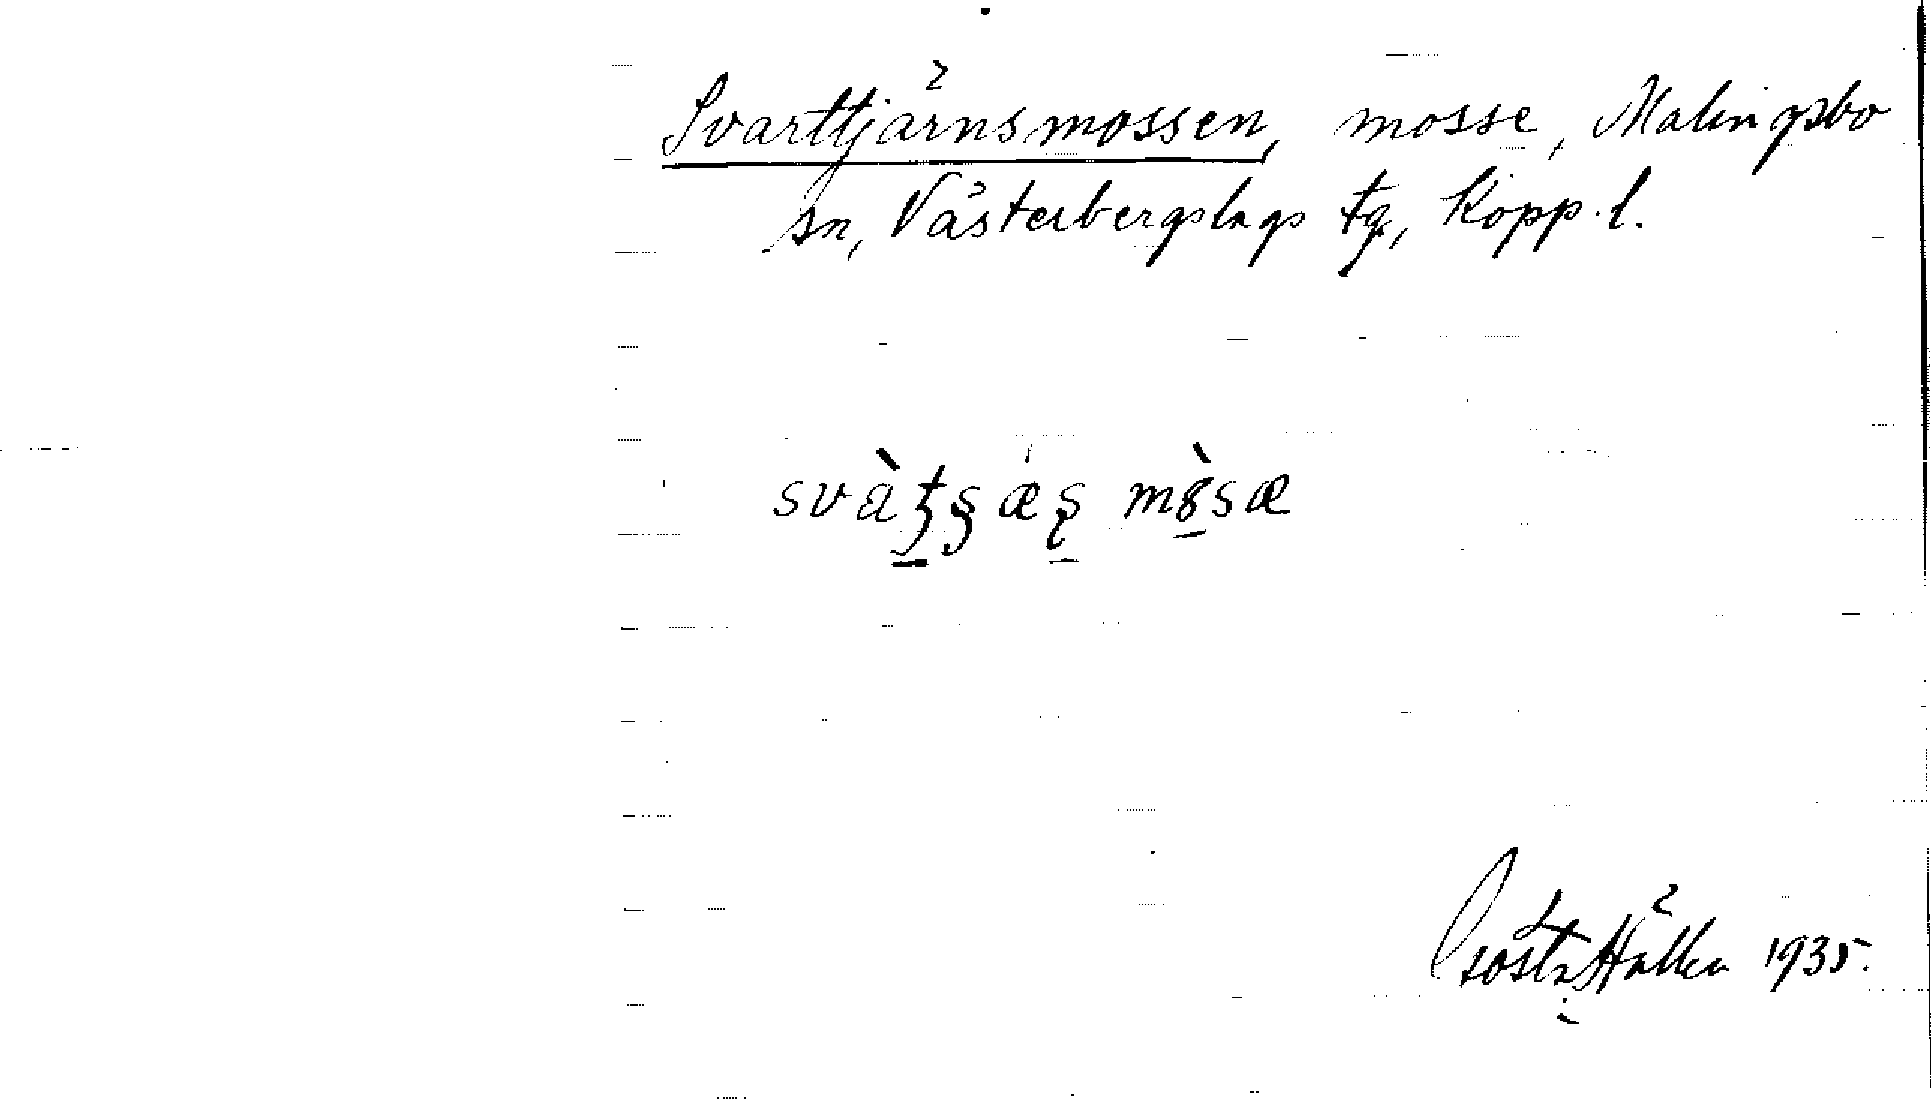 Svarttjärnsmossen, mosse, Malingsbo
sn, Västerbergslags tg, Kopp. l.
Gösta Hållen 1935.